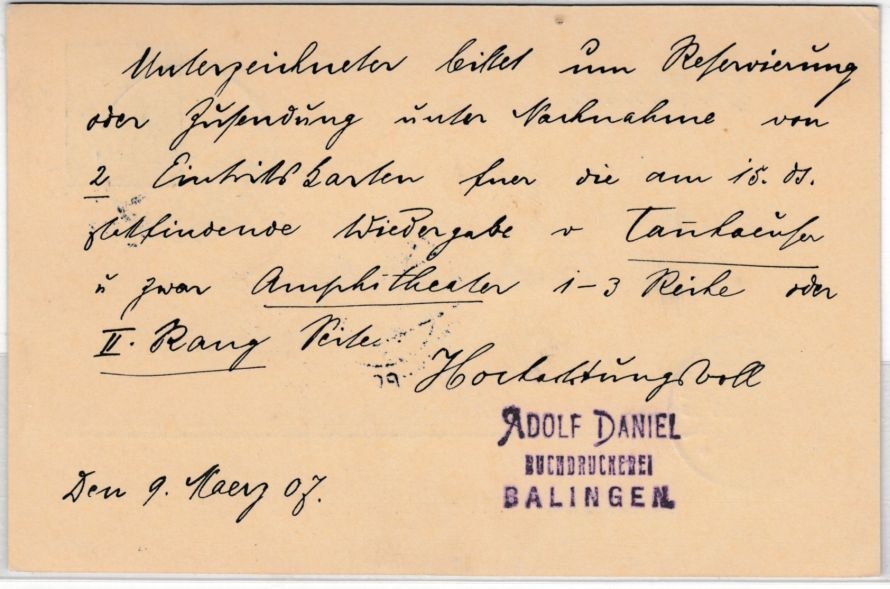 Unterzeichneter bittet um Reservierung
oder Zusendung unter Nachnahme von
2 Eintrittskarten fuer die am 15. ds.
stattfindende Wiedergabe v Tan̄haeuser
u zwar Amphitheater 1-3 Reihe oder
II. Rang Seite
Hochachtungsvoll
ADOLF DANIEL
BUCHDRUCKEREI
BALINGEN.
Den 9. Maerz 07.